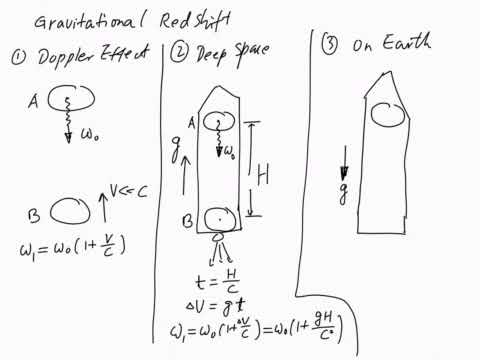 Gravitational Redshift
① Doppler Effect
A
ω₀
B
V<<C
ω₁=ω₀(1+V/C)
② Deep Space
A
ω₀
g
H
B
t = H/C
ΔV = gt
ω₁=ω₀(1+ΔV/C)=ω₀(1+gH/C²)
③ On Earth
g